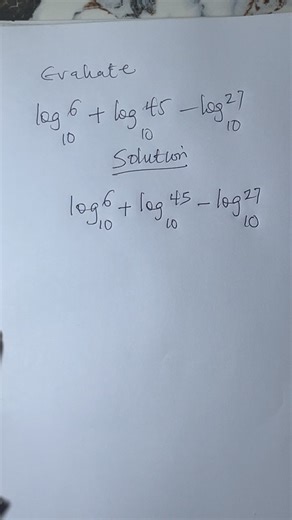 Evaluate
log₁₀⁶ + log₁₀⁴⁵ − log₁₀²⁷
Solution
log₁₀⁶ + log₁₀⁴⁵ − log₁₀²⁷